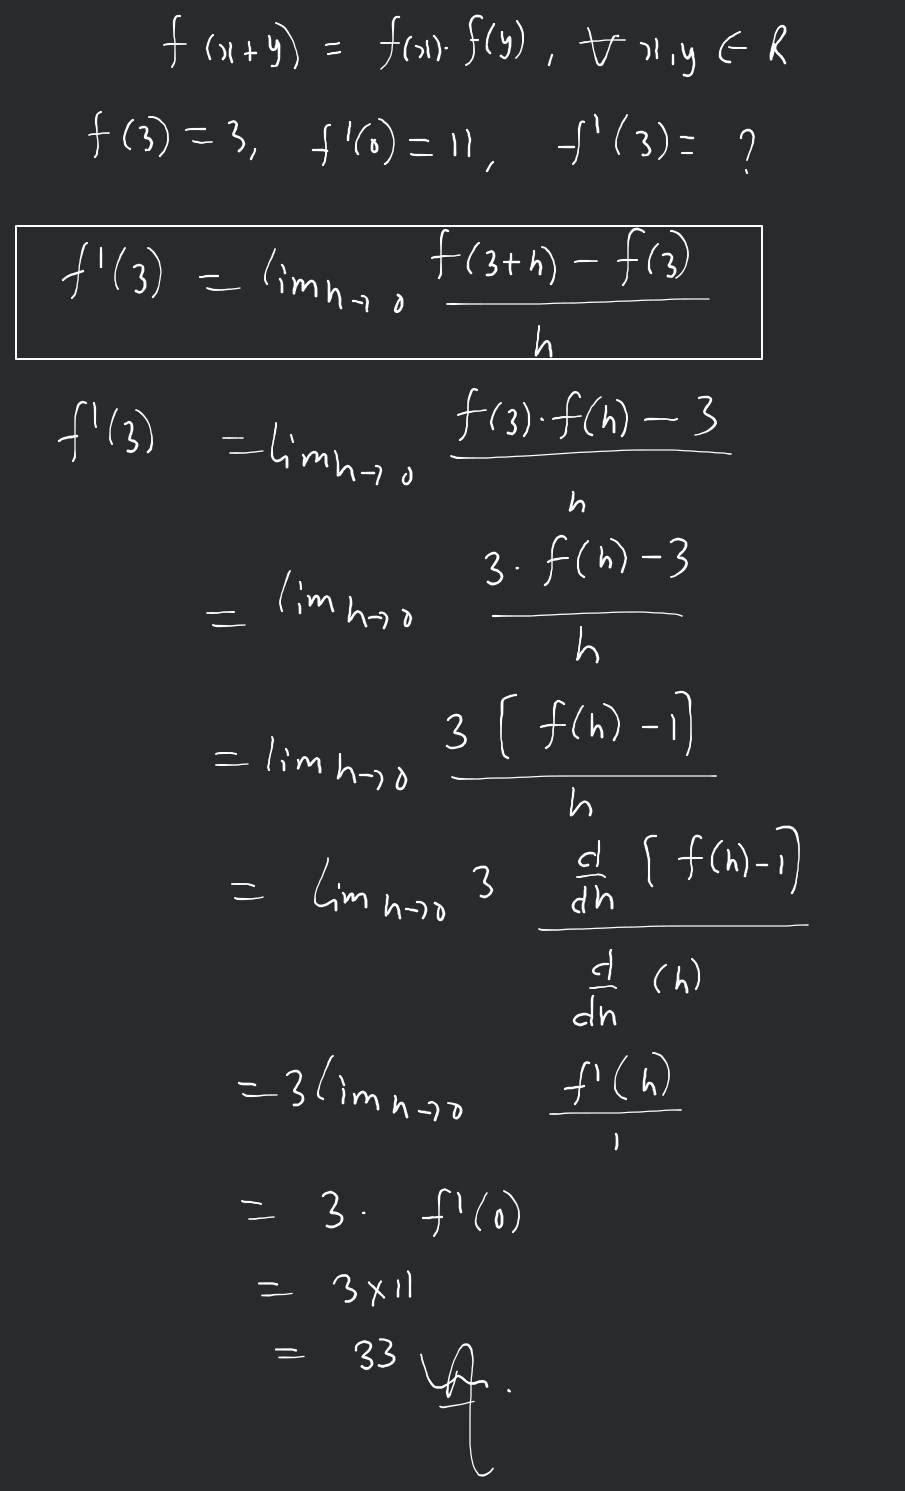 f(x+y) = f(x)·f(y), ∀ x,y ∈ R
f(3) = 3, f'(0) = 11, f'(3) = ?
f'(3) = lim h→0 (f(3+h) − f(3))/h
f'(3) = lim h→0 (f(3)·f(h) − 3)/h
= lim h→0 (3·f(h) − 3)/h
= lim h→0 3[f(h) − 1]/h
= lim h→0 3 (d/dh [f(h) − 1])/(d/dh (h))
= 3 lim h→0 f'(h)/1
= 3 · f'(0)
= 3 × 11
= 33